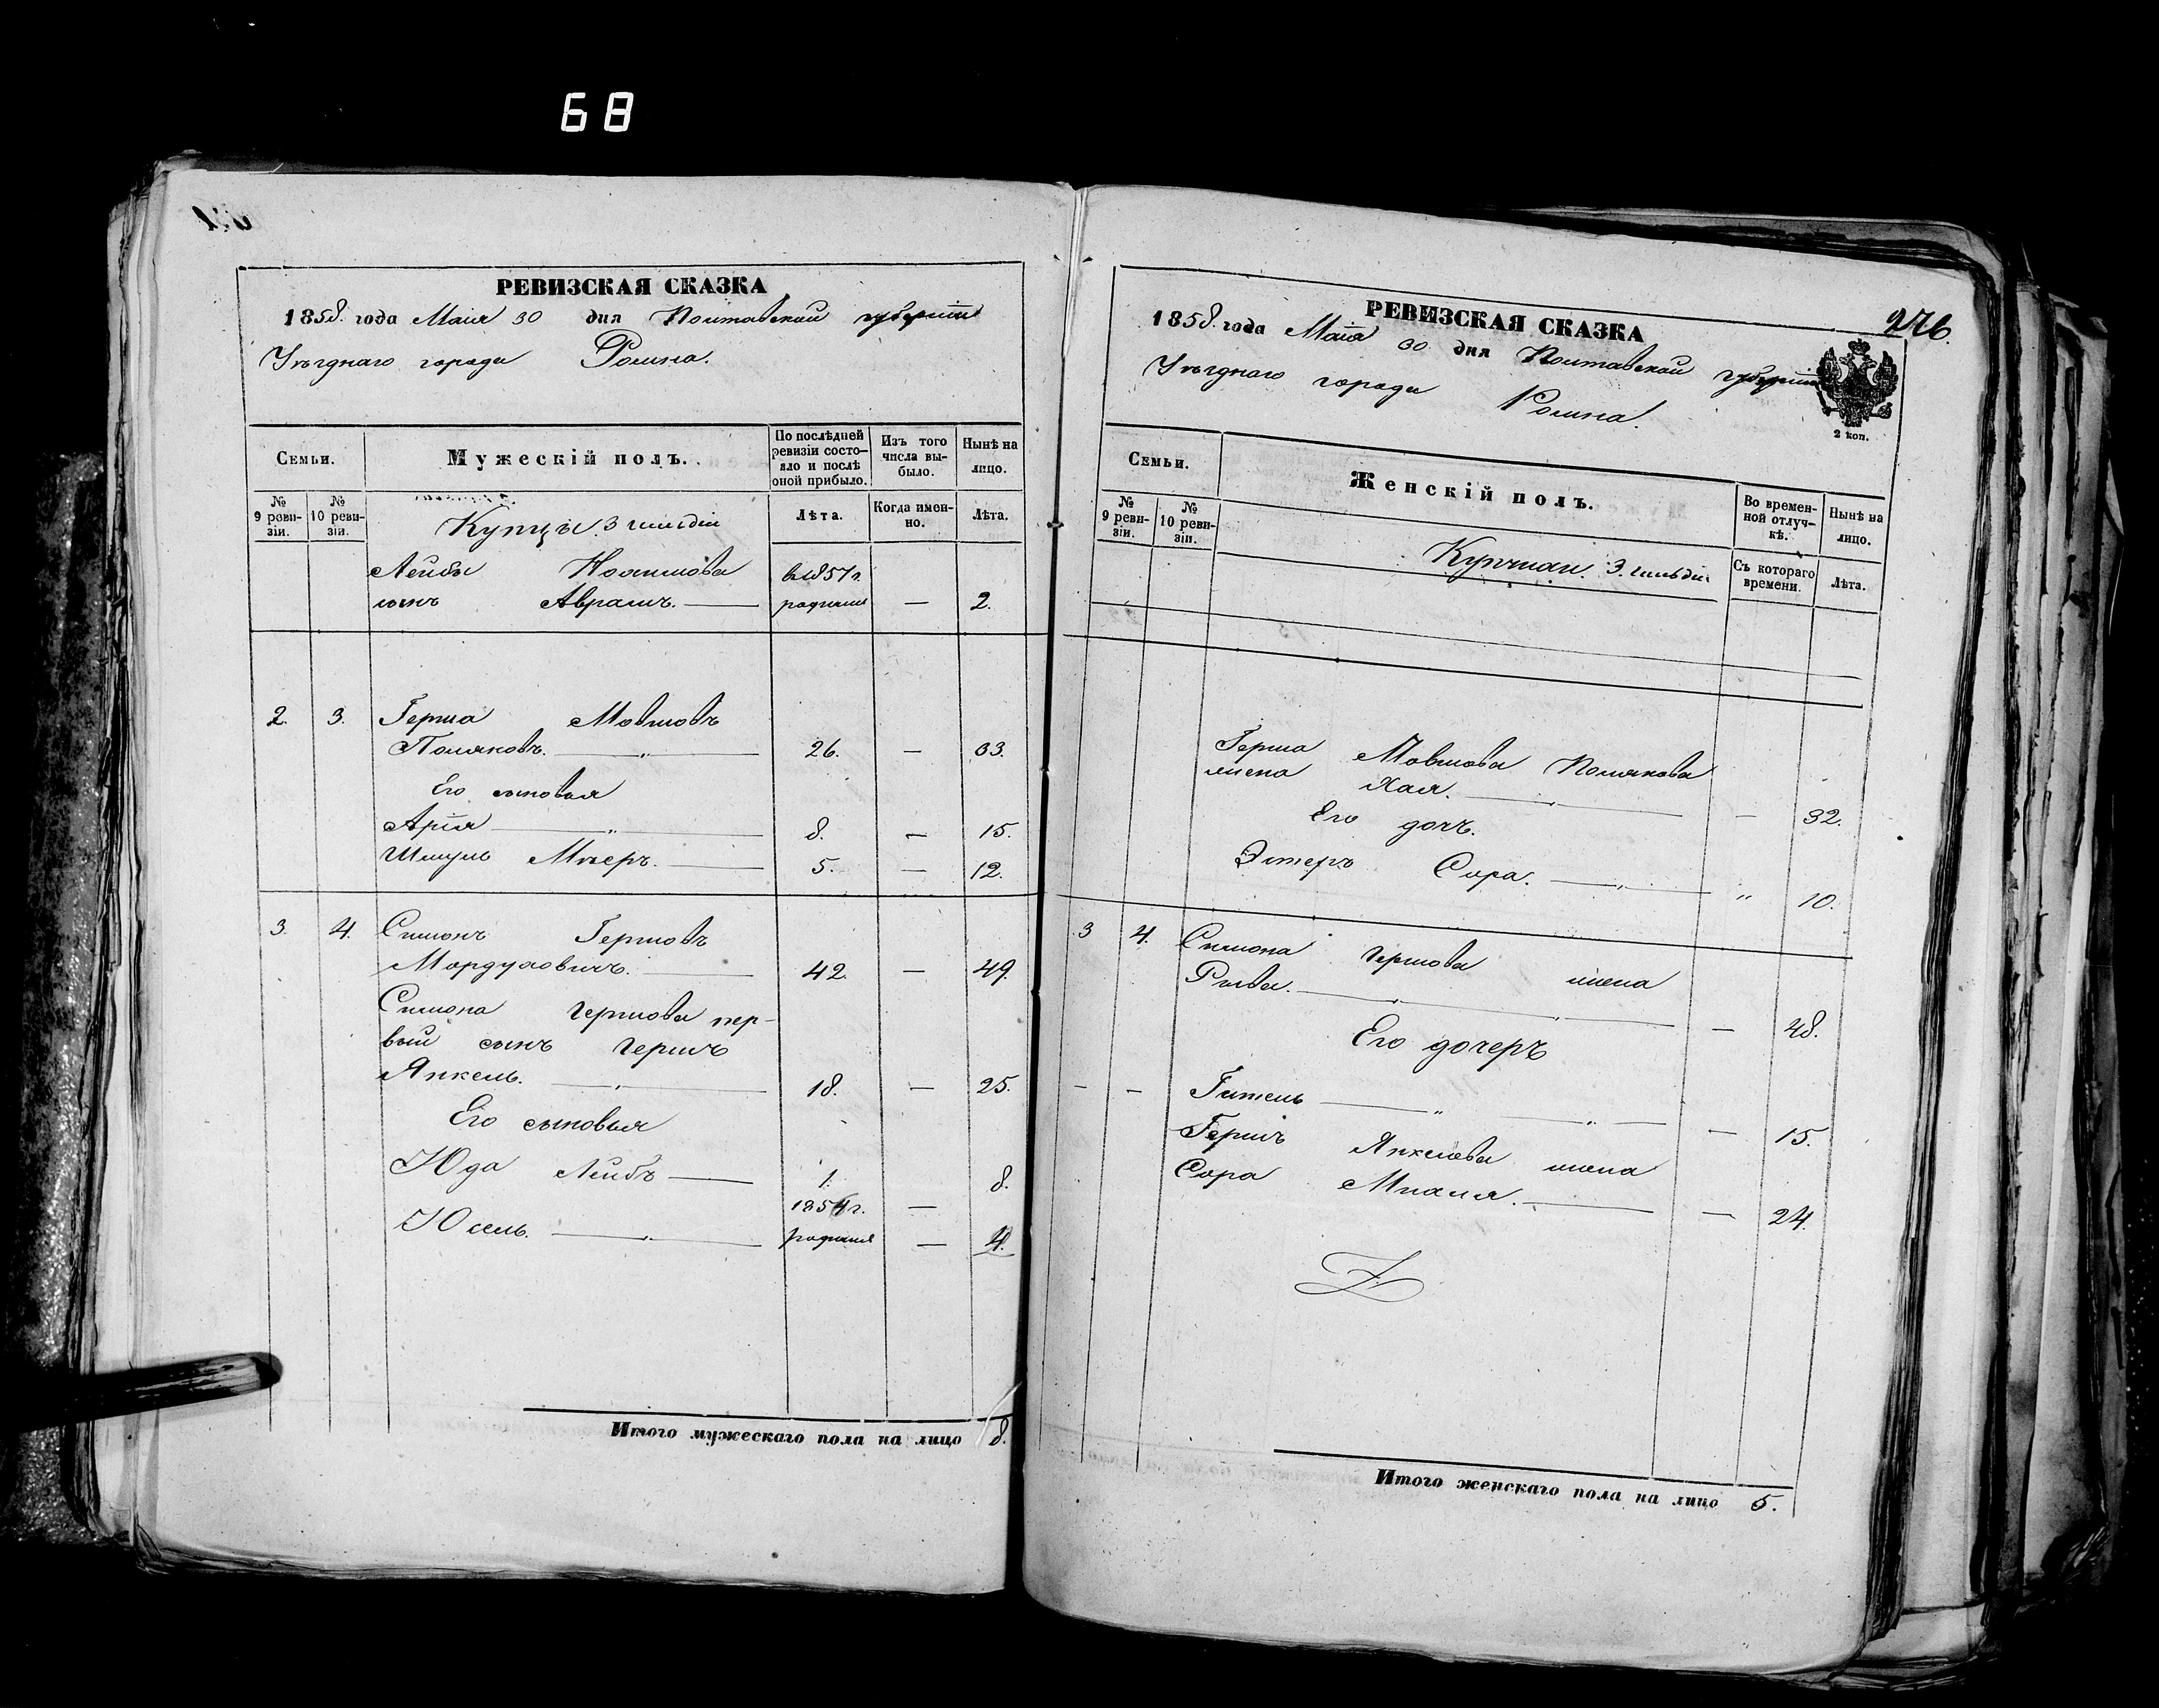 68
РЕВИЗСКАЯ СКАЗКА
1858. года Маія 30 дня Полтавской губерніи
Уѣзднаго города Ромна.
Семьи.
Мужескій полъ.
По послѣдней ревизіи состояло и послѣ оной прибыло.
Изъ того числа выбыло.
Нынѣ на лицо.
№ 9 ревизіи.
№ 10 ревизіи.
Купцы. 3 гильдіи
Лѣта.
Когда именно.
Лѣта.
Лейбы Ноахимова в 1857 г.
сынъ Аврамъ. родился — 2.
2. 3. Герша Мовшовъ
Поляковъ. 26. — 33.
Его сыновья
Арія 8. — 15.
Шмуль Мѣеръ. 5. — 12.
3. 4. Симонъ Гершовъ
Мордуховичъ. 42. — 49.
Симона Гершова пер-
вый сынъ Гершъ
Янкель. 18. — 25.
Его сыновья
Юда Лейбъ 1. — 8.
1854 г.
Юсель. родился — 4.
Итого мужескаго пола на лицо 8.
276.
РЕВИЗСКАЯ СКАЗКА
1858. года Маія 30 дня Полтавской губерніи
Уѣзднаго города Ромна.
2 коп.
Семьи.
Женскій полъ.
Во временной отлучкѣ.
Нынѣ на лицо.
№ 9 ревизіи.
№ 10 ревизіи.
Купчихи. 3. гильдіи
Съ котораго времени.
Лѣта.
Герша Мовшова Полякова
жена Хая. — 32.
Его доч.
Эстеръ Сора. " 10.
3 4. Симона Гершова жена
Рыва. — 48.
Его дочеръ
— — Гитель — 15.
Гершъ Янкелева жена
Сора — 24.
Итого женскаго пола на лицо 5.